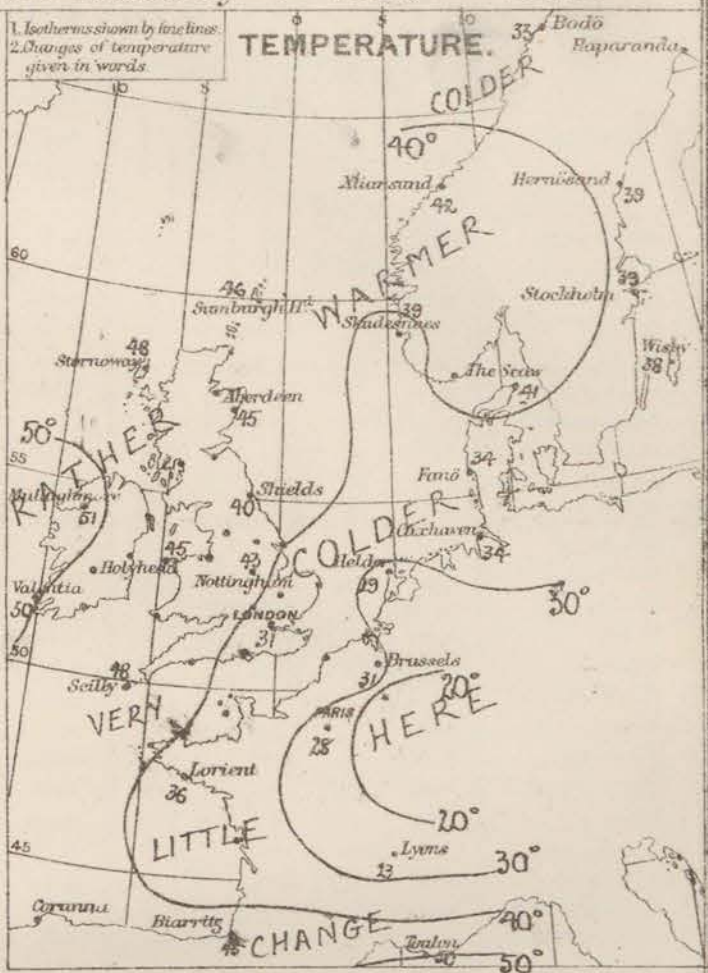 1. Isotherms shown by fine lines.
2. Changes of temperature
given in words.
TEMPERATURE.
0
10
10
5
5
33
Bodö
Haparanda
COLDER
40°
Xtiansund
42
Hernösand
39
WARMER
60
46
Sumburgh Hd
39
Skudesnaes
Stockholm
39
Wisby
38
48
Stornoway
The Scaw
41
Aberdeen
45
50°
RATHER
55
Mullaghmore
51
Shields
40
Fanö
34
COLDER
Cuxhaven
34
45
Holyhead
43
Nottingham
Helder
29
30°
Valentia
50
LONDON
31
50
48
Scilly
Brussels
31
20°
VERY
PARIS
28
HERE
Lorient
36
20°
LITTLE
45
Lyons
23
30°
Corunna
Biarritz
CHANGE
40°
Toulon
50°